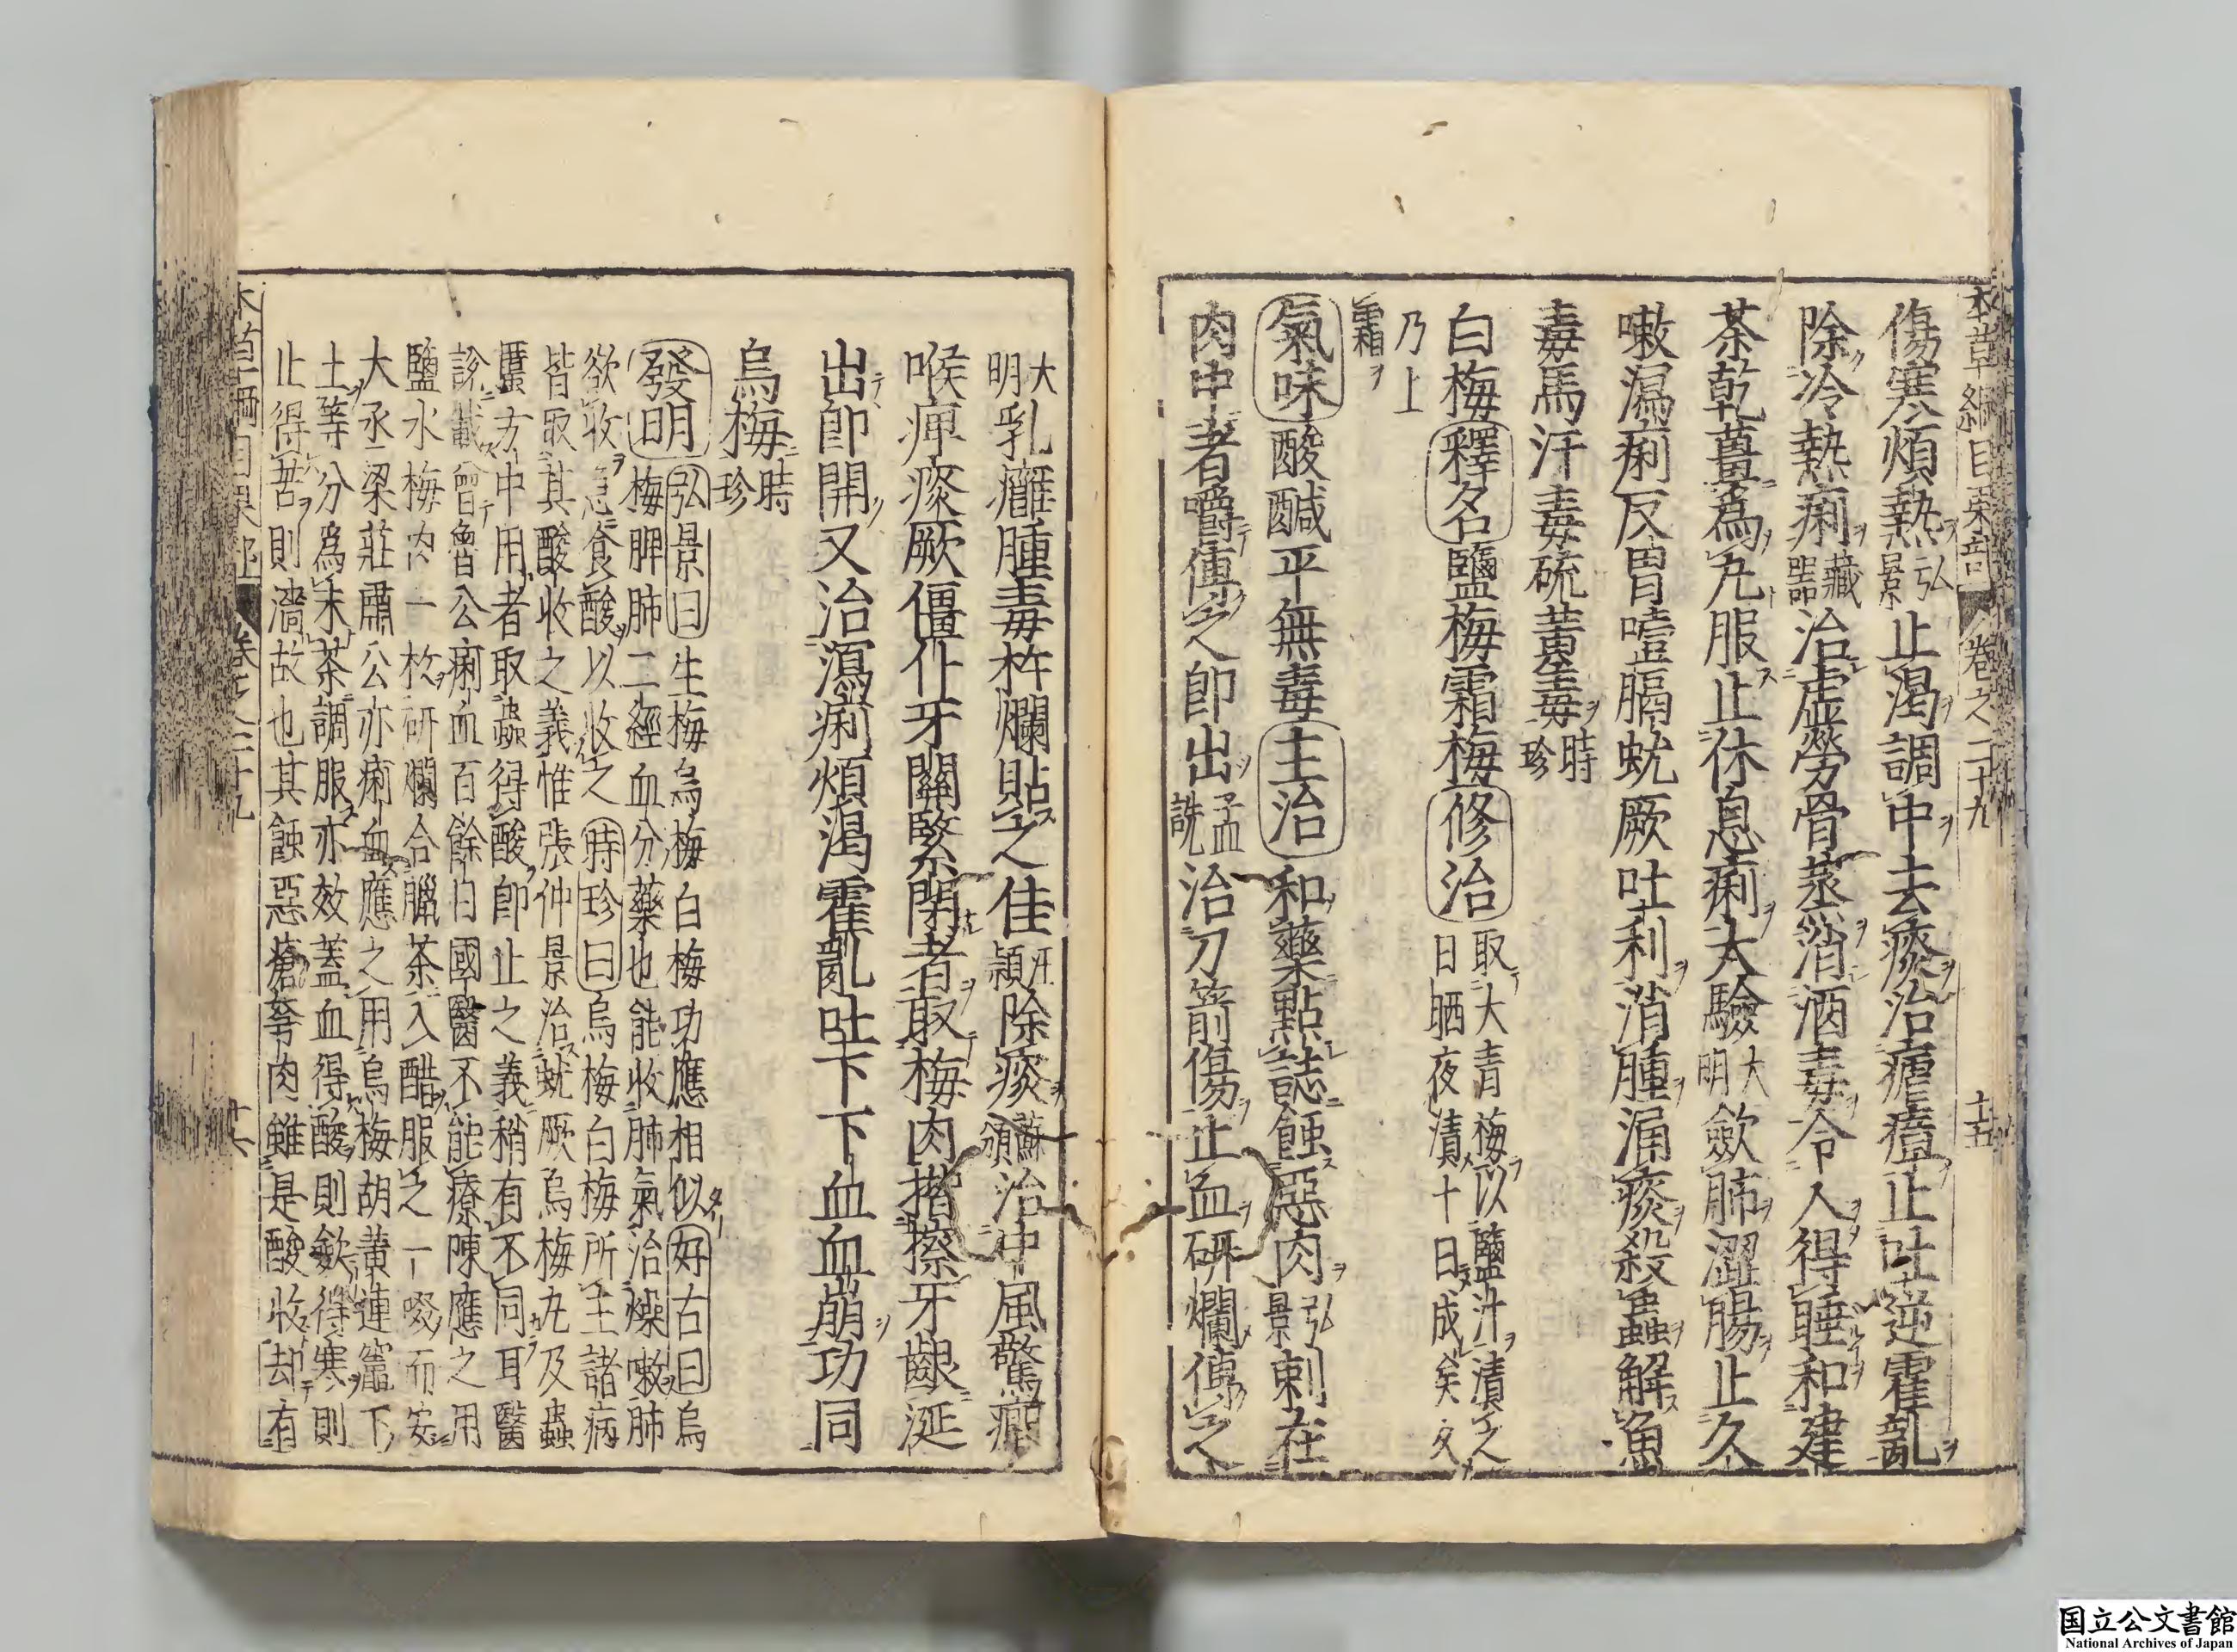 本草綱目果部 卷之二十九 十五
傷寒煩熱弘景止渴調中去痰治瘧瘴止吐逆霍亂
除冷熱痢藏器治虛勞骨蒸消酒毒令人得睡和建
茶乾薑爲丸服止休息痢大驗大明歛肺澀腸止久
嗽瀉痢反胃噎膈蚘厥吐利消腫涌痰殺蟲解魚
毒馬汗毒硫黃毒時珍
白梅釋名鹽梅霜梅修治取大青梅以鹽汁漬之日晒夜漬十日成矣久
乃上霜
氣味酸鹹平無毒主治和藥點誌蝕惡肉弘景刺在
肉中者嚼傅之即出孟詵治刀箭傷止血研爛傅之
大明乳癰腫毒杵爛貼之佳汪頴除痰蘇頌治中風驚癇
喉痺痰厥僵仆牙關緊閉者取梅肉揩擦牙齦涎
出即開又治瀉痢煩渴霍亂吐下下血血崩功同
烏梅時珍
發明弘景曰生梅烏梅白梅功應相似好古曰烏
梅脾肺二經血分藥也能收肺氣治燥嗽肺
欲收急食酸以收之時珍曰烏梅白梅所主諸病
皆取其酸收之義惟張仲景治蚘厥烏梅丸及蟲
䘌方中用者取蟲得酸即止之義稍有不同耳醫
說載曾魯公痢血百餘日國醫不能療陳應之用
鹽水梅肉一枚研爛合臘茶入醋服之一啜而安
大丞梁莊肅公亦痢血應之用烏梅胡黃連竈下
土等分爲末茶調服亦效蓋血得酸則歛得寒則
止得苦則濇故也其蝕惡瘡弩肉雖是酸收却有
本草綱目果部 卷之二十九 十六
国立公文書館
National Archives of Japan